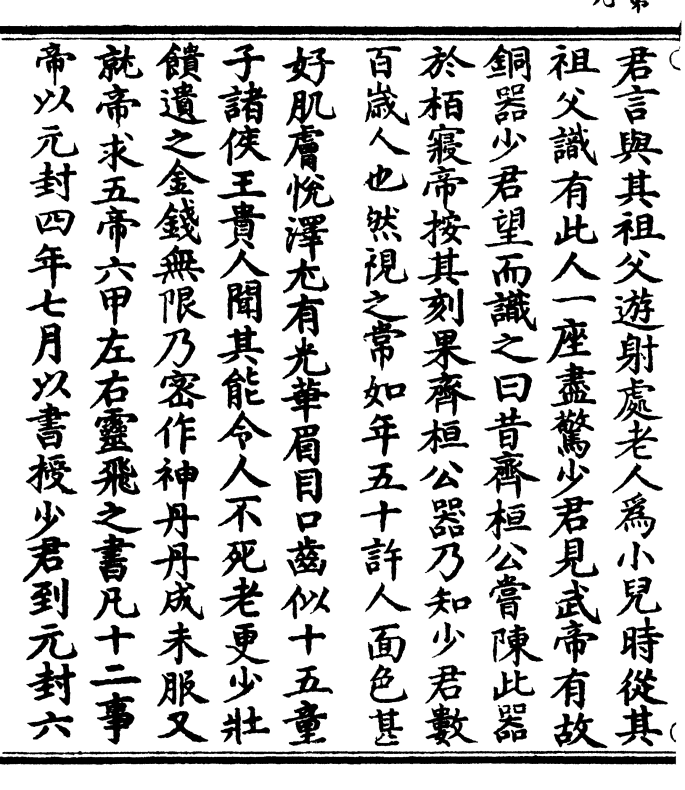 君言與其祖父遊射處老人爲小兒時從其
祖父識有此人一座盡驚少君見武帝有故
銅器少君望而識之曰昔齊桓公嘗陳此器
於栢寢帝按其刻果齊桓公器乃知少君數
百歲人也然視之常如年五十許人面色甚
好肌膚悅澤尤有光華眉目口齒似十五童
子諸侯王貴人聞其能令人不死老更少壯
饋遺之金錢無限乃密作神丹丹成未服又
就帝求五帝六甲左右靈飛之書凡十二事
帝以元封四年七月以書授少君到元封六